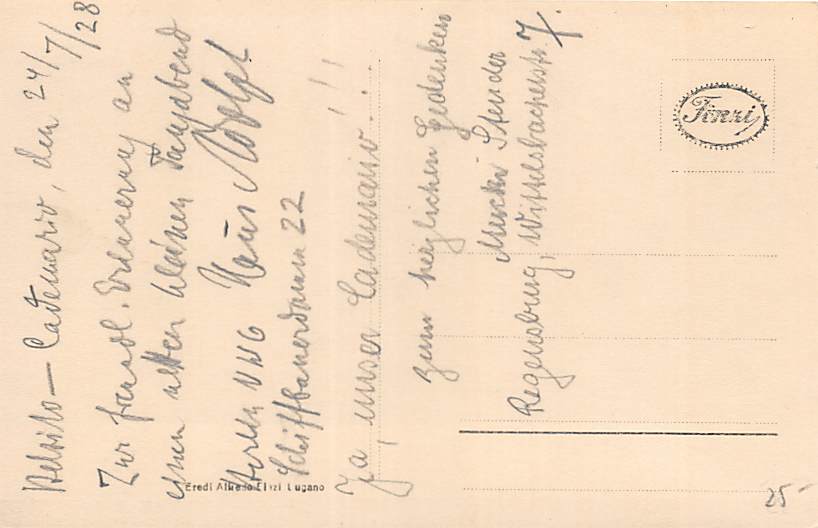 Cademario, den 24/7/28
Zur freundl. Erinnerung an
einen netten kleinen Tanzabend
Hans Adolph
Berlin NW6
Schiffbauerdamm 22
Ja, unser Cademario!!!
Zum herzlichen Gedenken
Studer
Regensburg, Wittelsbacherstr. 7.
Eredi Alfredo Finzi Lugano
Finzi
25-